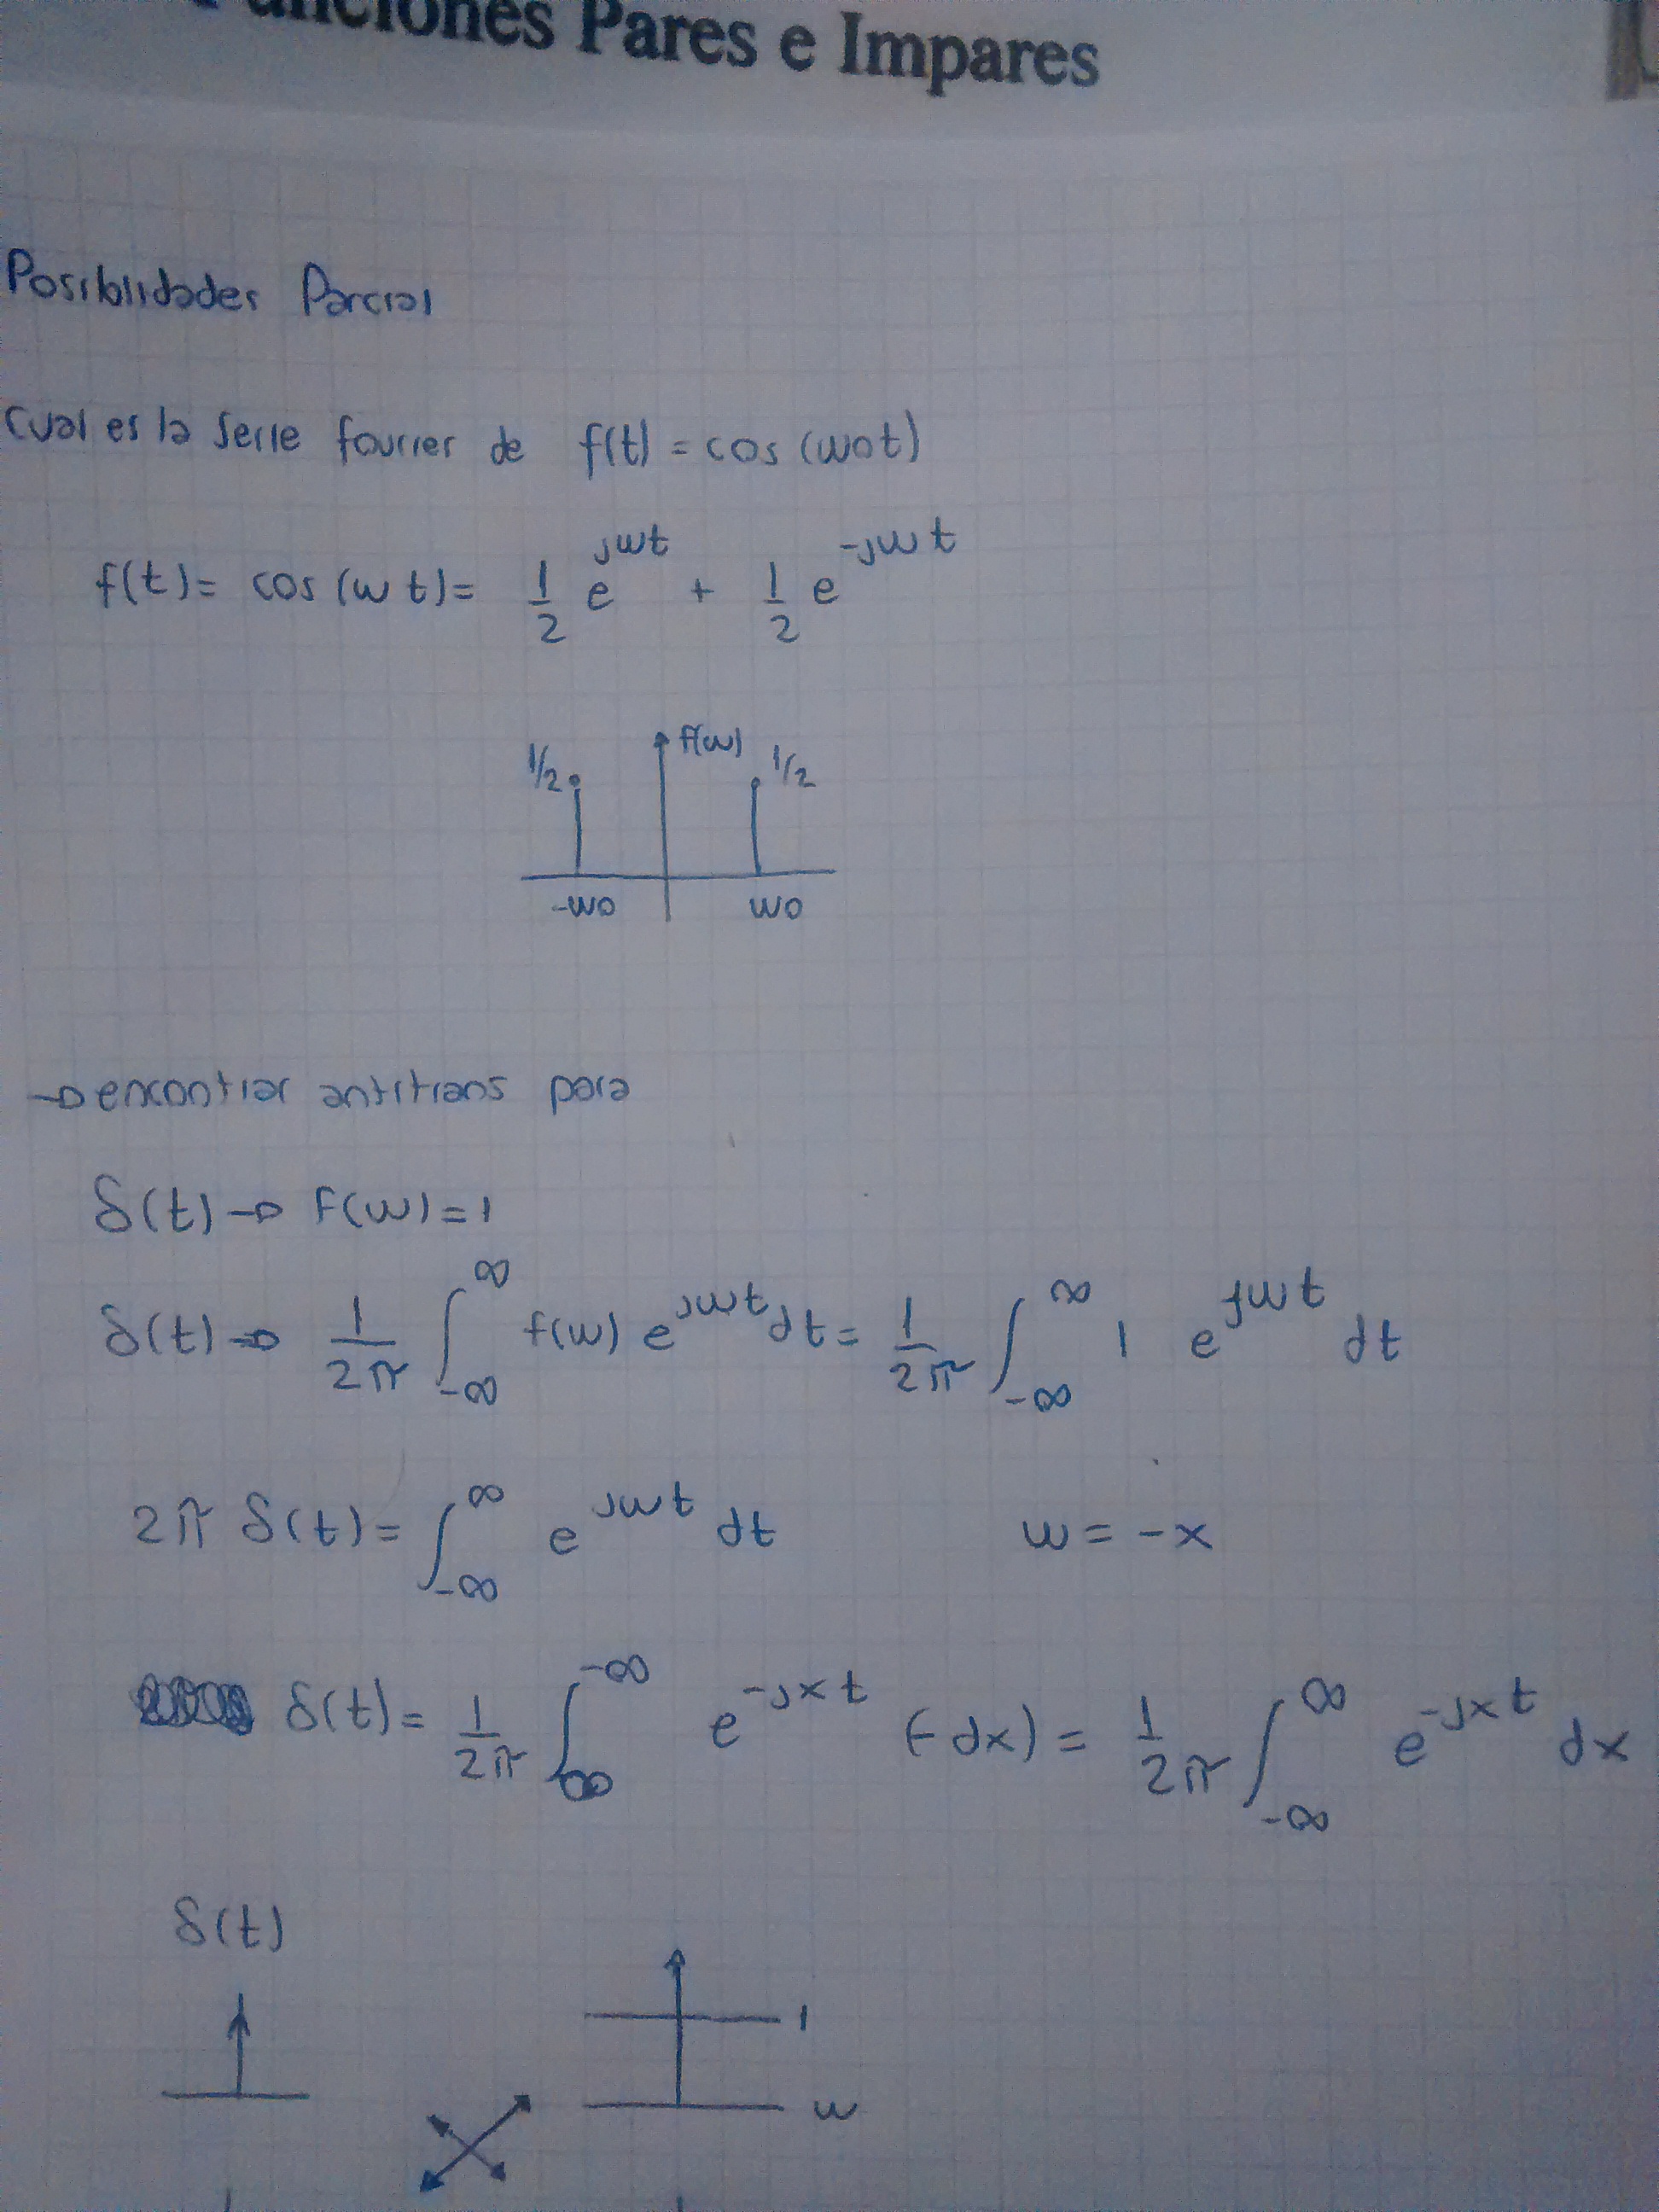 Funciones Pares e Impares
Posiblidades Parcial
Cual es la serie fourier de f(t) = cos (wot)
f(t) = cos (w t) = 1/2 e^jwt + 1/2 e^-jwt
1/2 f(w) 1/2
-wo wo
→ encontrar antitrans para
δ(t) → F(w) = 1
δ(t) → 1/2π ∫_-∞^∞ f(w) e^jwt dt = 1/2π ∫_-∞^∞ 1 e^jwt dt
2π δ(t) = ∫_-∞^∞ e^jwt dt w = -x
δ(t) = 1/2π ∫_∞^-∞ e^-jxt (-dx) = 1/2π ∫_-∞^∞ e^-jxt dx
δ(t)
1
w